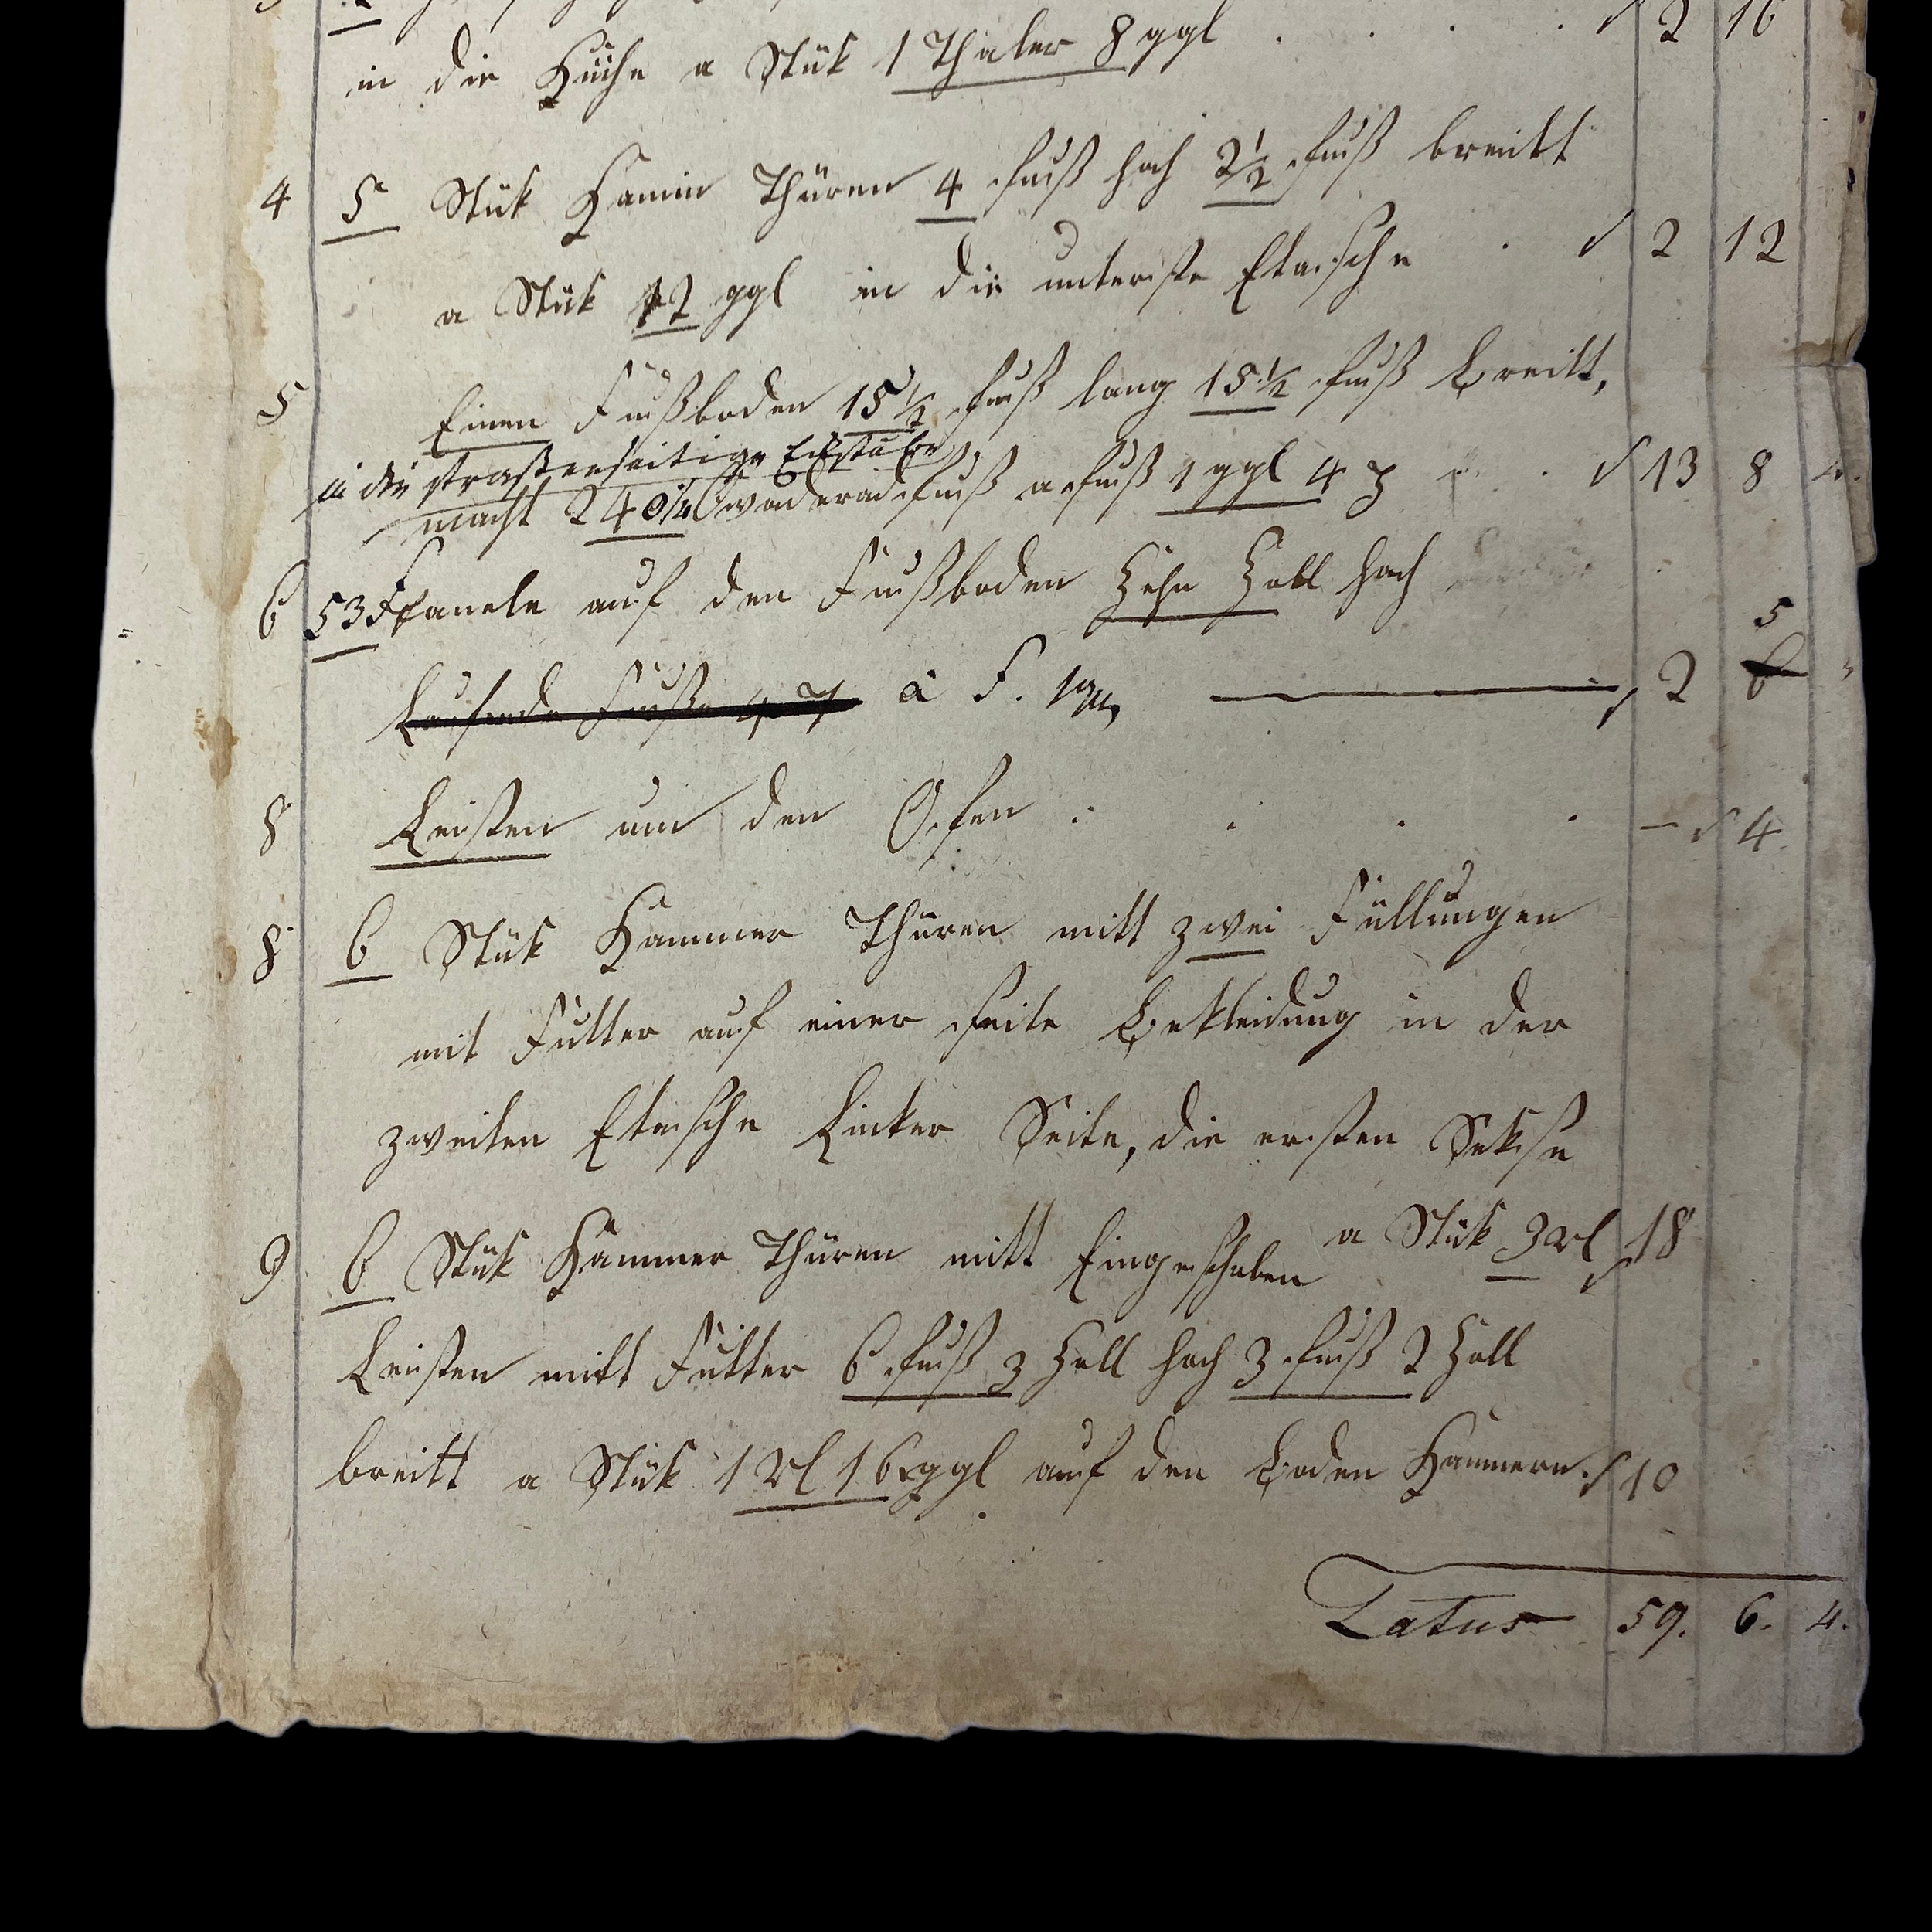 in die Küche a Stük 1 Thaler 8 ggl . . . . 2 16
4 5 Stük Kamin Thüren 4 fuß hoch 2½ fuß breitt
a Stük 12 ggl in die unterste Etasche . 2 12
5 Einen Fußboden 15½ fuß lang 15½ fuß breitt,
in die straßenseitige Eckstube
macht 240¼ Qwaderadfuß a fuß 1 ggl 4 . 13 8 4.
6 53 F Panele auf den Fußboden Zehn Zoll hoch
5
Laufende Fuße 47 à F. 1 2 6 "
8 Leisten um den Ofen . . . . – 4.
8 6 Stük Kammer Thüren mitt zwei Füllungen
mit Futter auf einer seite Bekleidung in der
zweiten Etasche Linker Seite, die ersten Sekse
a Stük 3 rl 18
9 6 Stük Kammer Thüren mitt Eingeschoben
Leisten mitt Futter 6 fuß 3 Zoll hoch 3 fuß 2 Zoll
breitt a Stük 1 rl 16 ggl auf den Boden Kammern. 10
Latus 59. 6. 4.